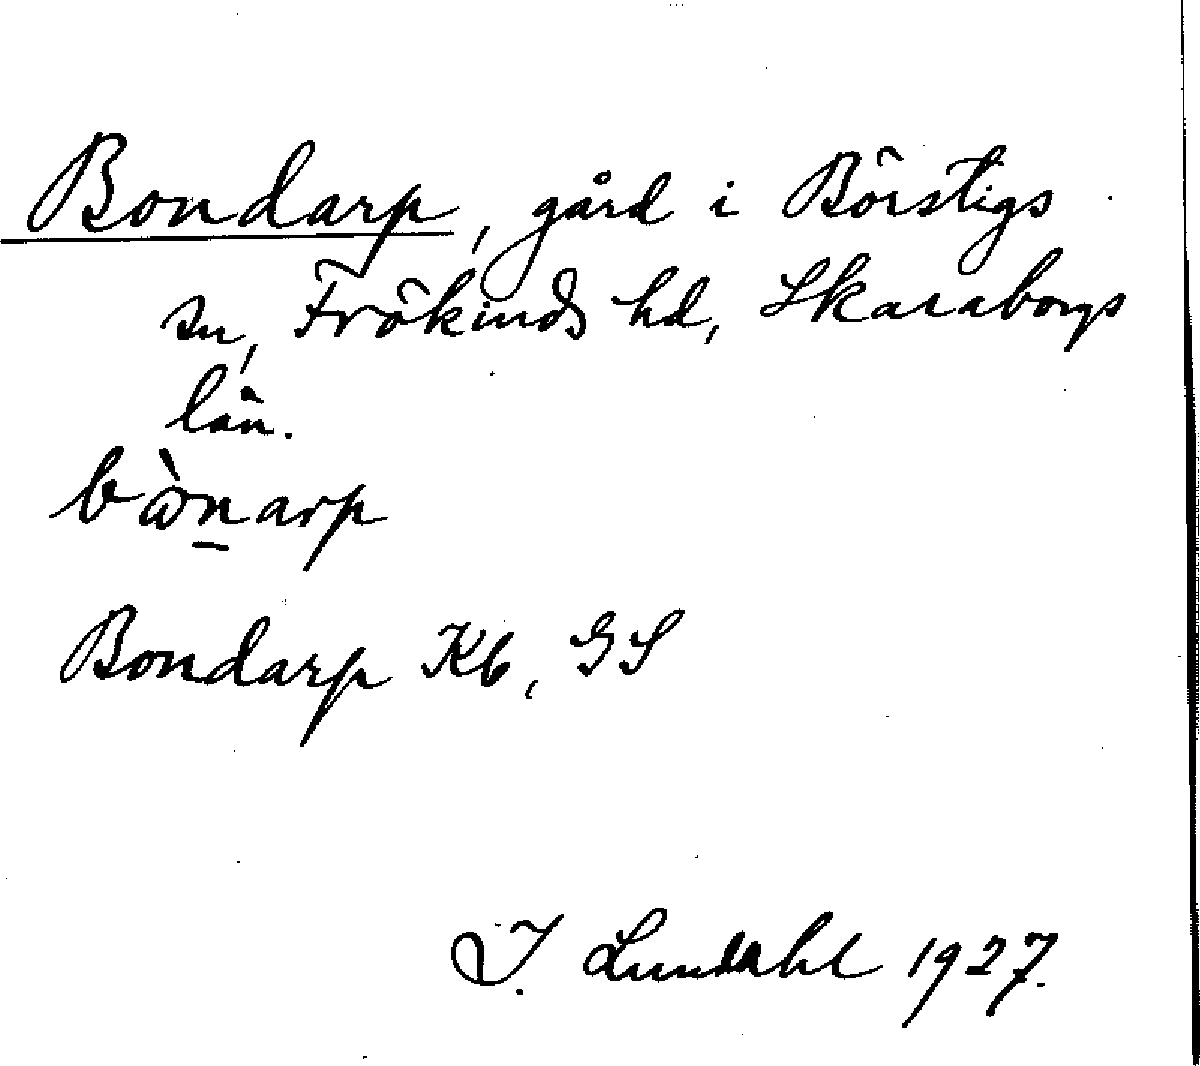 Bondarp, gård i Börstigs
sn, Frökinds hd, Skaraborgs
län.
bѡ̀n̠arp
Bondarp Kb, GS
I. Lundahl 1927.